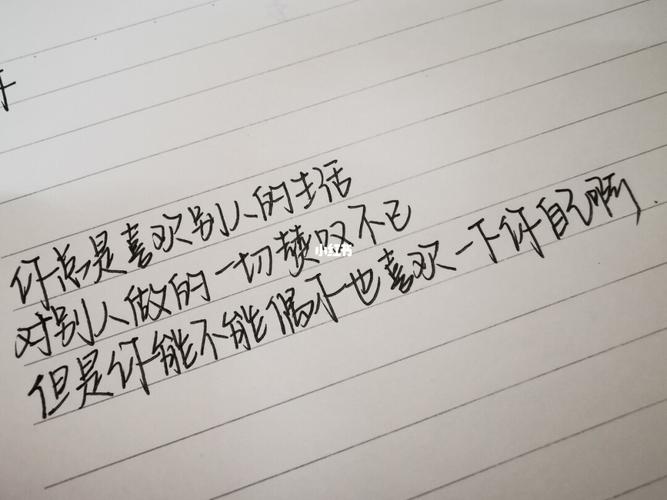 你总是喜欢别人的生活
对别人做的一切赞叹不已
但是你能不能偶尔也喜欢一下你自己啊
小红书